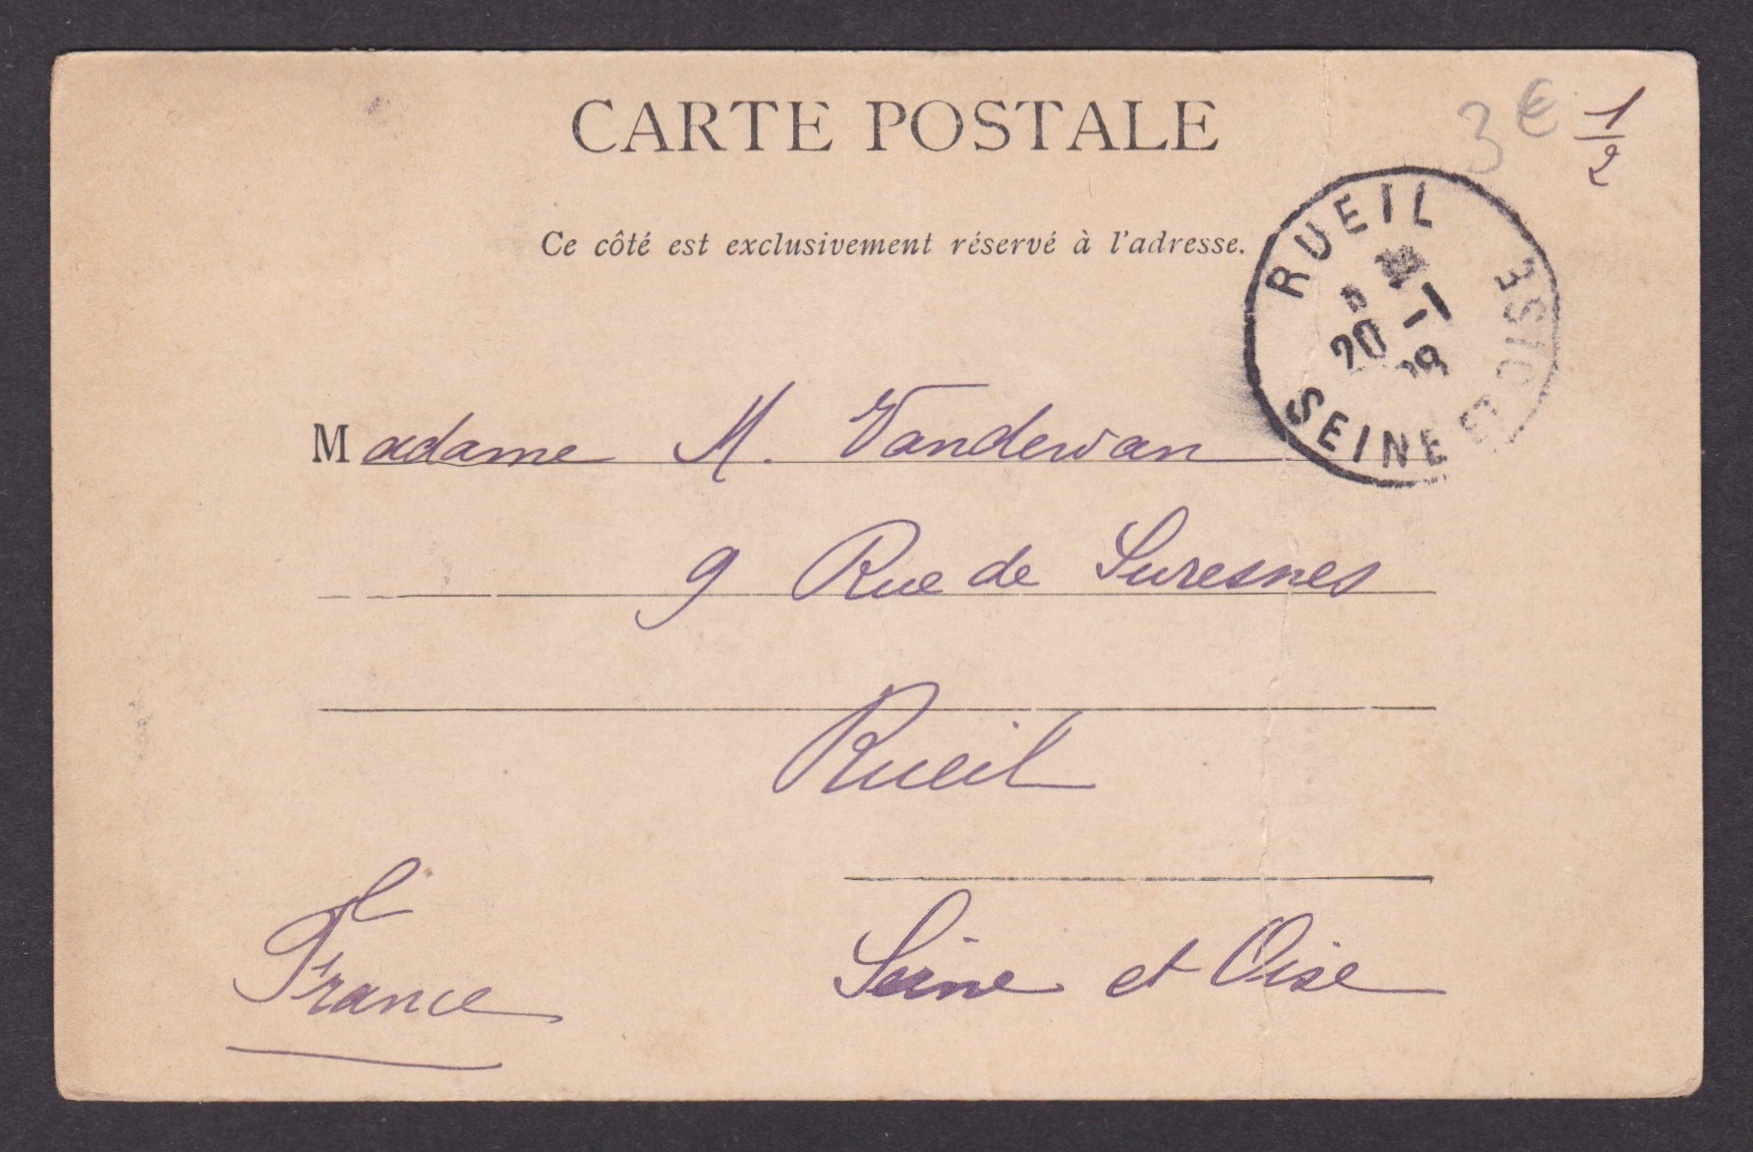 CARTE POSTALE
3 €
1/2
Ce côté est exclusivement réservé à l'adresse.
RUEIL
20 -1
09
SEINE ET OISE
Madame M. Vandewan
9 Rue de Suresnes
Rueil
Seine et Oise
France